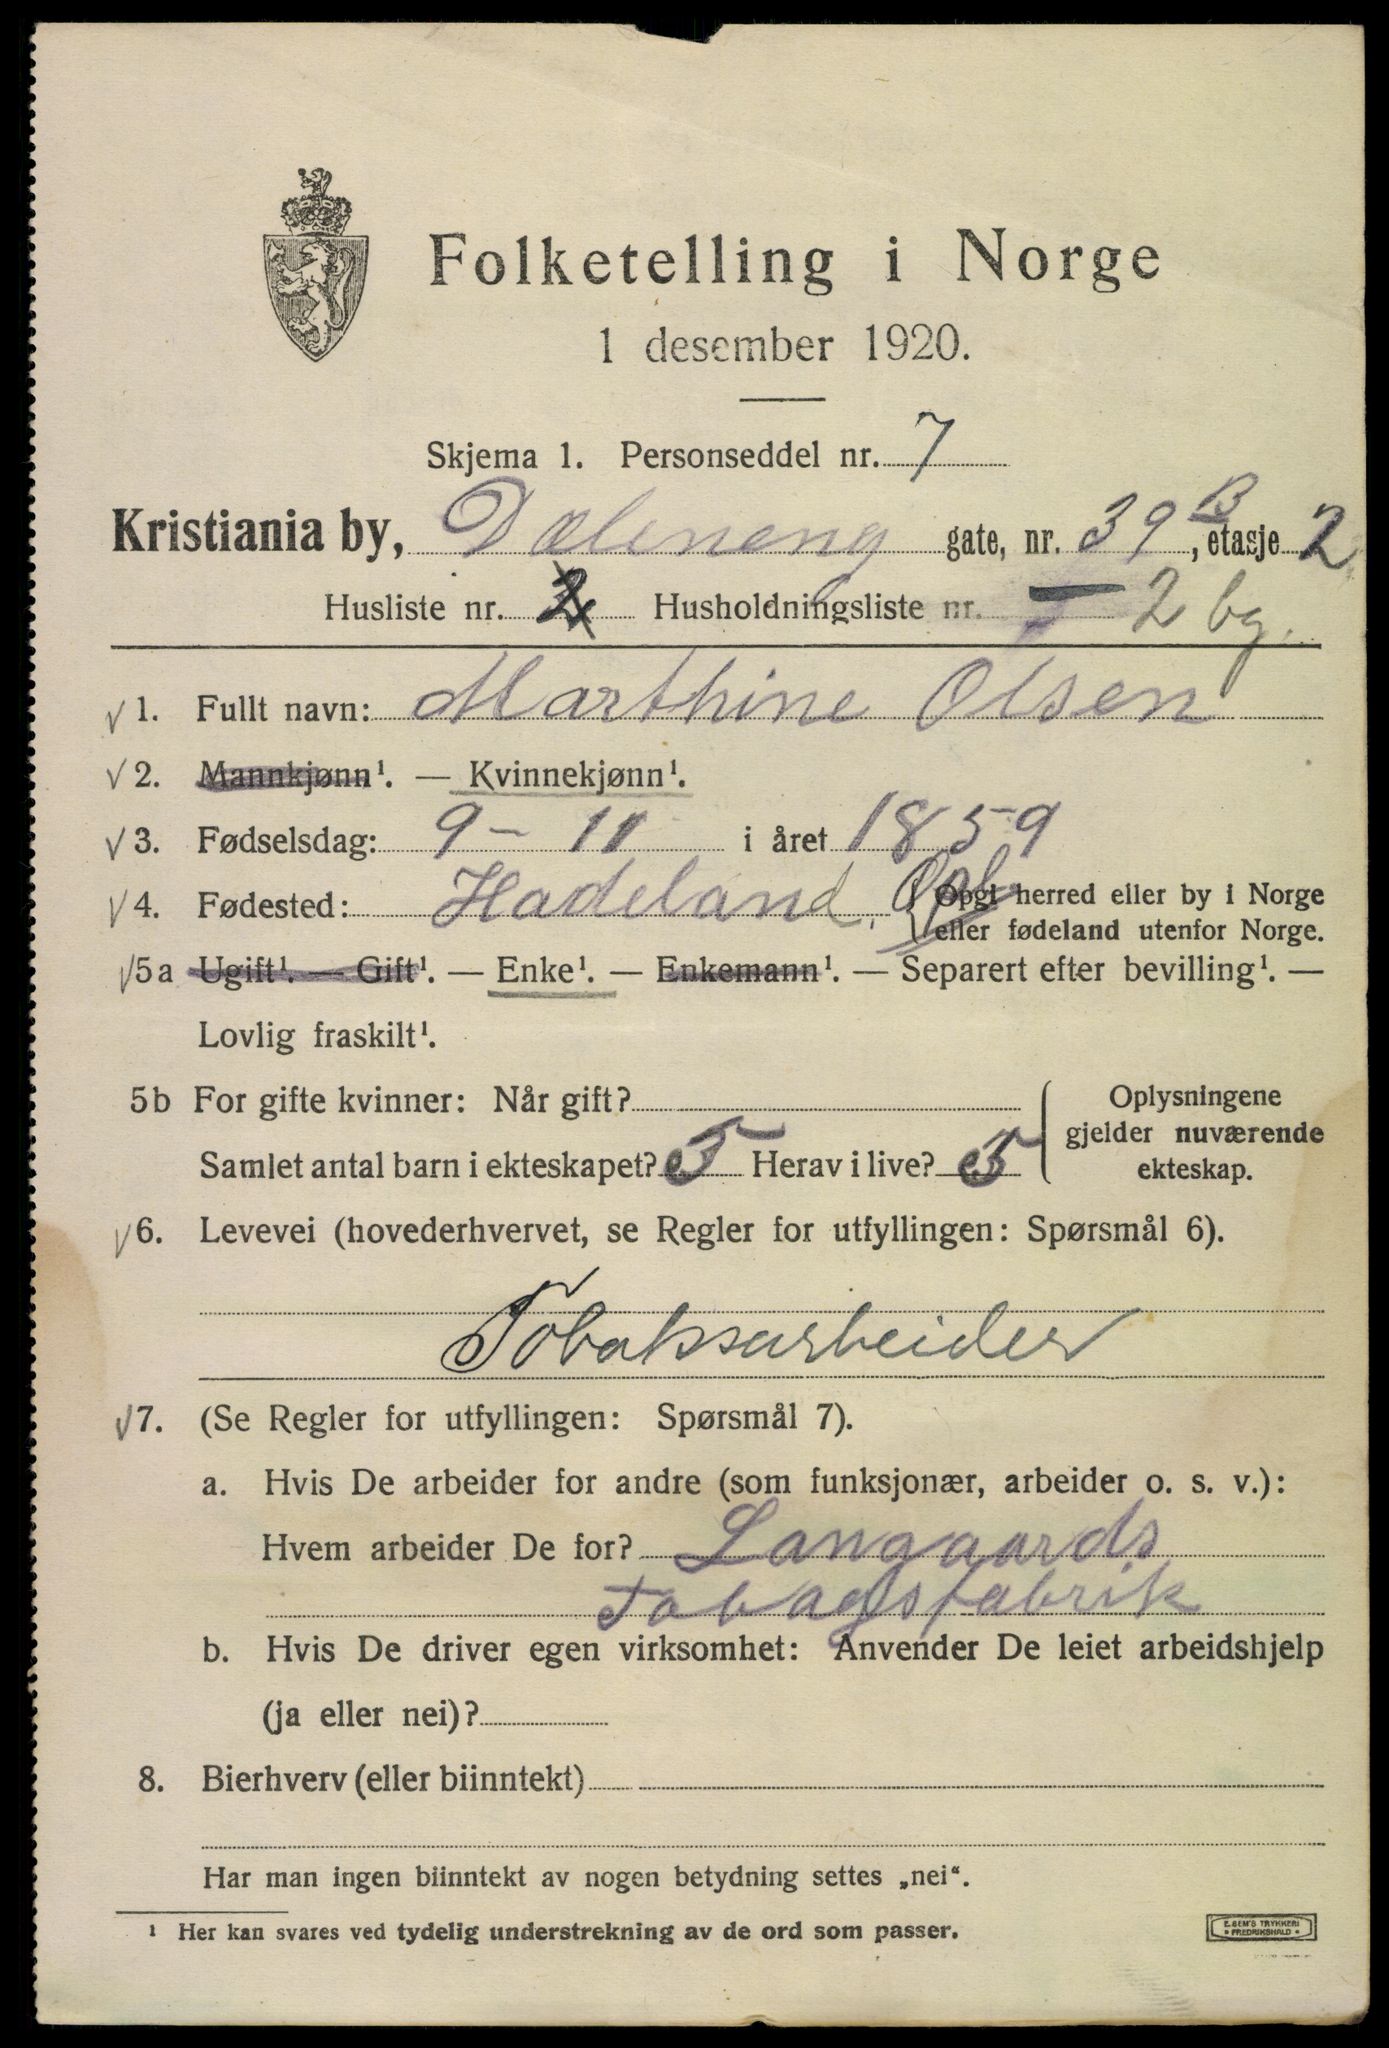 Folketelling i Norge
1 desember 1920.
Skjema 1. Personseddel nr. 7
Kristiania by, Dæleneng gate, nr. 39 B, etasje 2
Husliste nr. 2 Husholdningsliste nr. 2 bg.
1. Fullt navn: Marthine Olsen
2. Mannkjønn¹. — Kvinnekjønn¹.
3. Fødselsdag: 9 - 11 i året 1859
4. Fødested: Hadeland, Opl. Opgi herred eller by i Norge
eller fødeland utenfor Norge.
5a Ugift¹. — Gift¹. — Enke¹. — Enkemann¹. — Separert efter bevilling¹. —
Lovlig fraskilt¹.
5b For gifte kvinner: Når gift? Oplysningene
gjelder nuværende
Samlet antal barn i ekteskapet? 5 Herav i live? 5 ekteskap.
6. Levevei (hovederhvervet, se Regler for utfyllingen: Spørsmål 6).
Tobaksarbeider
7. (Se Regler for utfyllingen: Spørsmål 7).
a. Hvis De arbeider for andre (som funksjonær, arbeider o. s. v.):
Hvem arbeider De for? Langaards
Tobagsfabrik
b. Hvis De driver egen virksomhet: Anvender De leiet arbeidshjelp
(ja eller nei)?
8. Bierhverv (eller biinntekt)
Har man ingen biinntekt av nogen betydning settes „nei“.
¹ Her kan svares ved tydelig understrekning av de ord som passer.
E. SEM'S TRYKKERI
• FREDRIKSHALD •